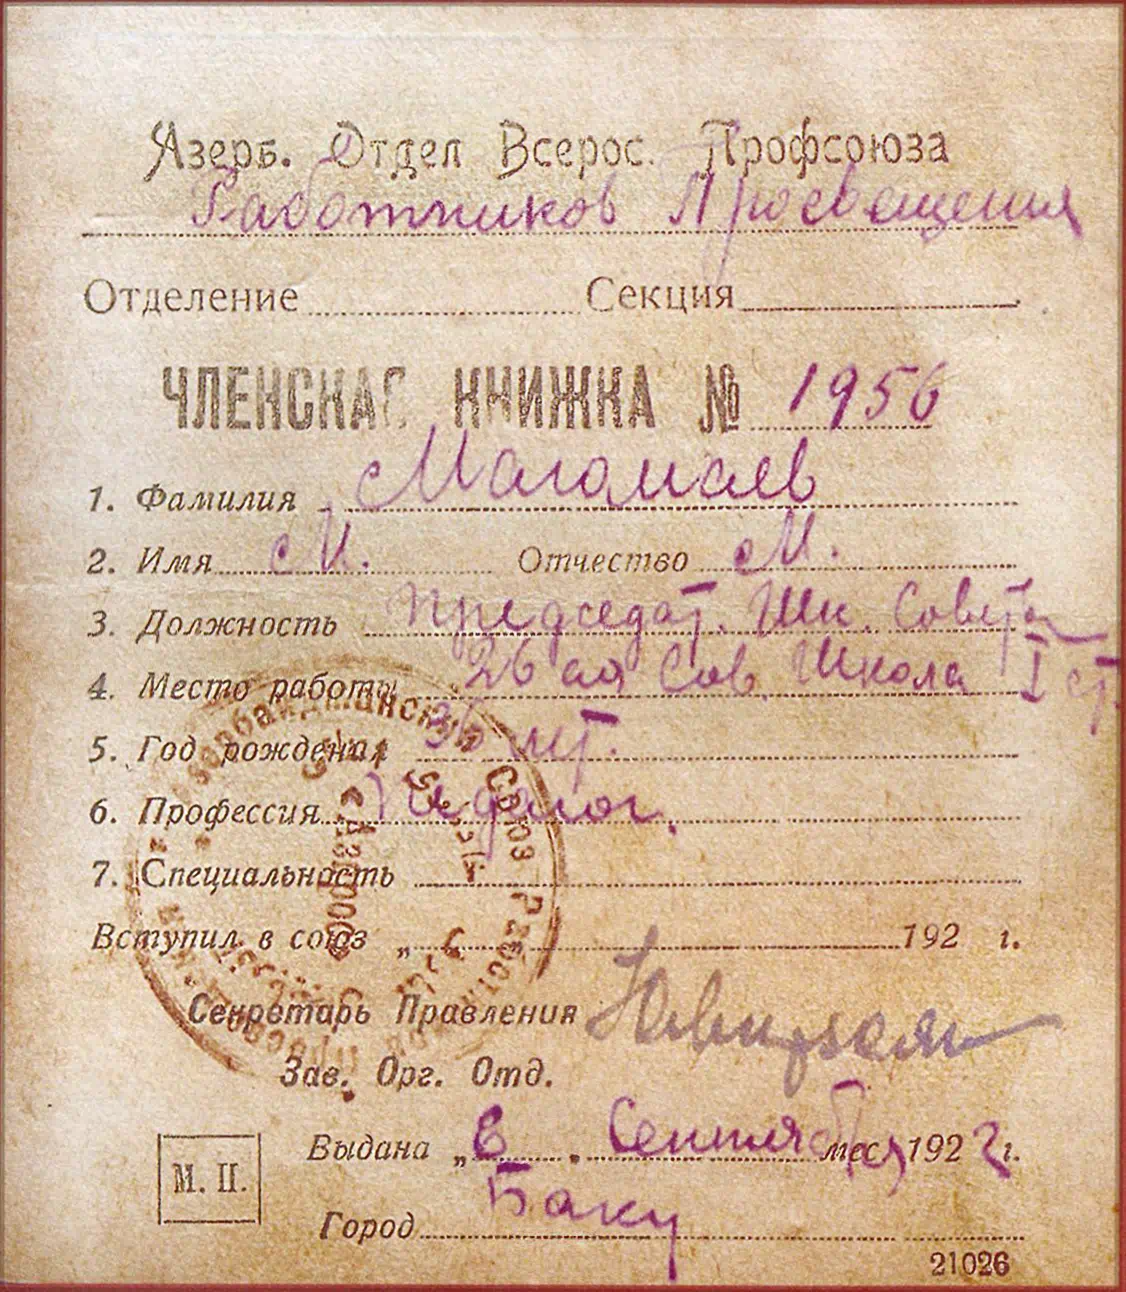 Азерб. Отдел Всерос. Профсоюза
Работников Просвещения
Отделение Секция
ЧЛЕНСКАЯ КНИЖКА № 1956
1. Фамилия Магомаев
2. Имя М. Отчество М.
3. Должность Председат. Шк. Совета
4. Место работы 26 ая Сов. Школа I ст.
5. Год рождения 36 лет.
6. Профессия Педагог.
7. Специальность
Вступил в союз „ 192 г.
Секретарь Правления
Зав. Орг. Отд.
Выдана „6 „ Сентября мес 1922 г.
М. П.
Город Баку
21026